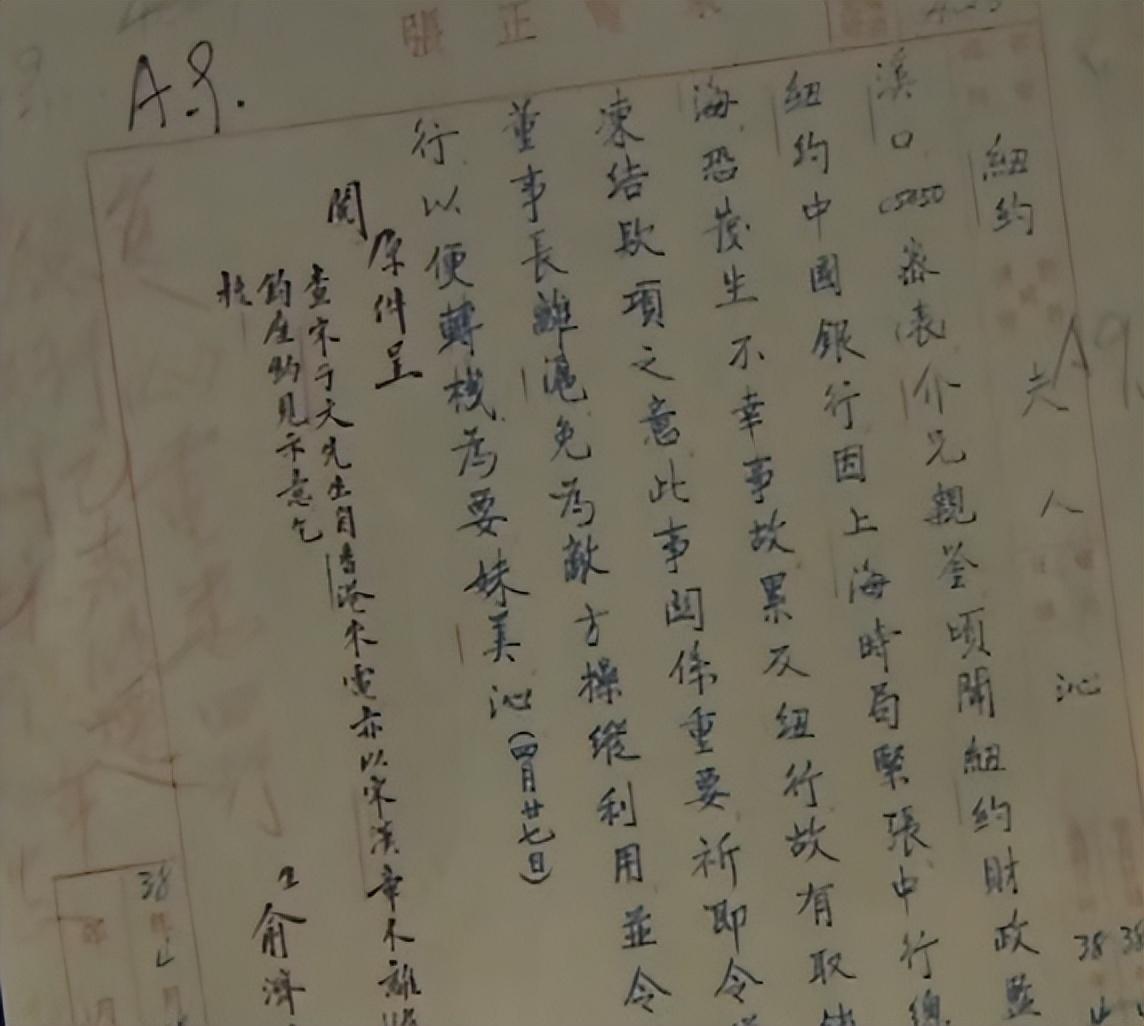 張正
A.9.
紐約
夫人 沁
溪口 C5050 密表介兄親鉴頃聞紐約財政監
紐約中國銀行因上海時局緊張中行總
海恐发生不幸事故累及紐行故有取
凍结款項之意此事関係重要祈即令
董事長離滬免為敵方操縱利用並令
行以便轉機為要妹美沁(四月廿七日)
原件呈
閱
查宋子文先生自香港来電亦以宋漢章不離
鈞座鈞見示意乞
核
俞濟
38
38
38